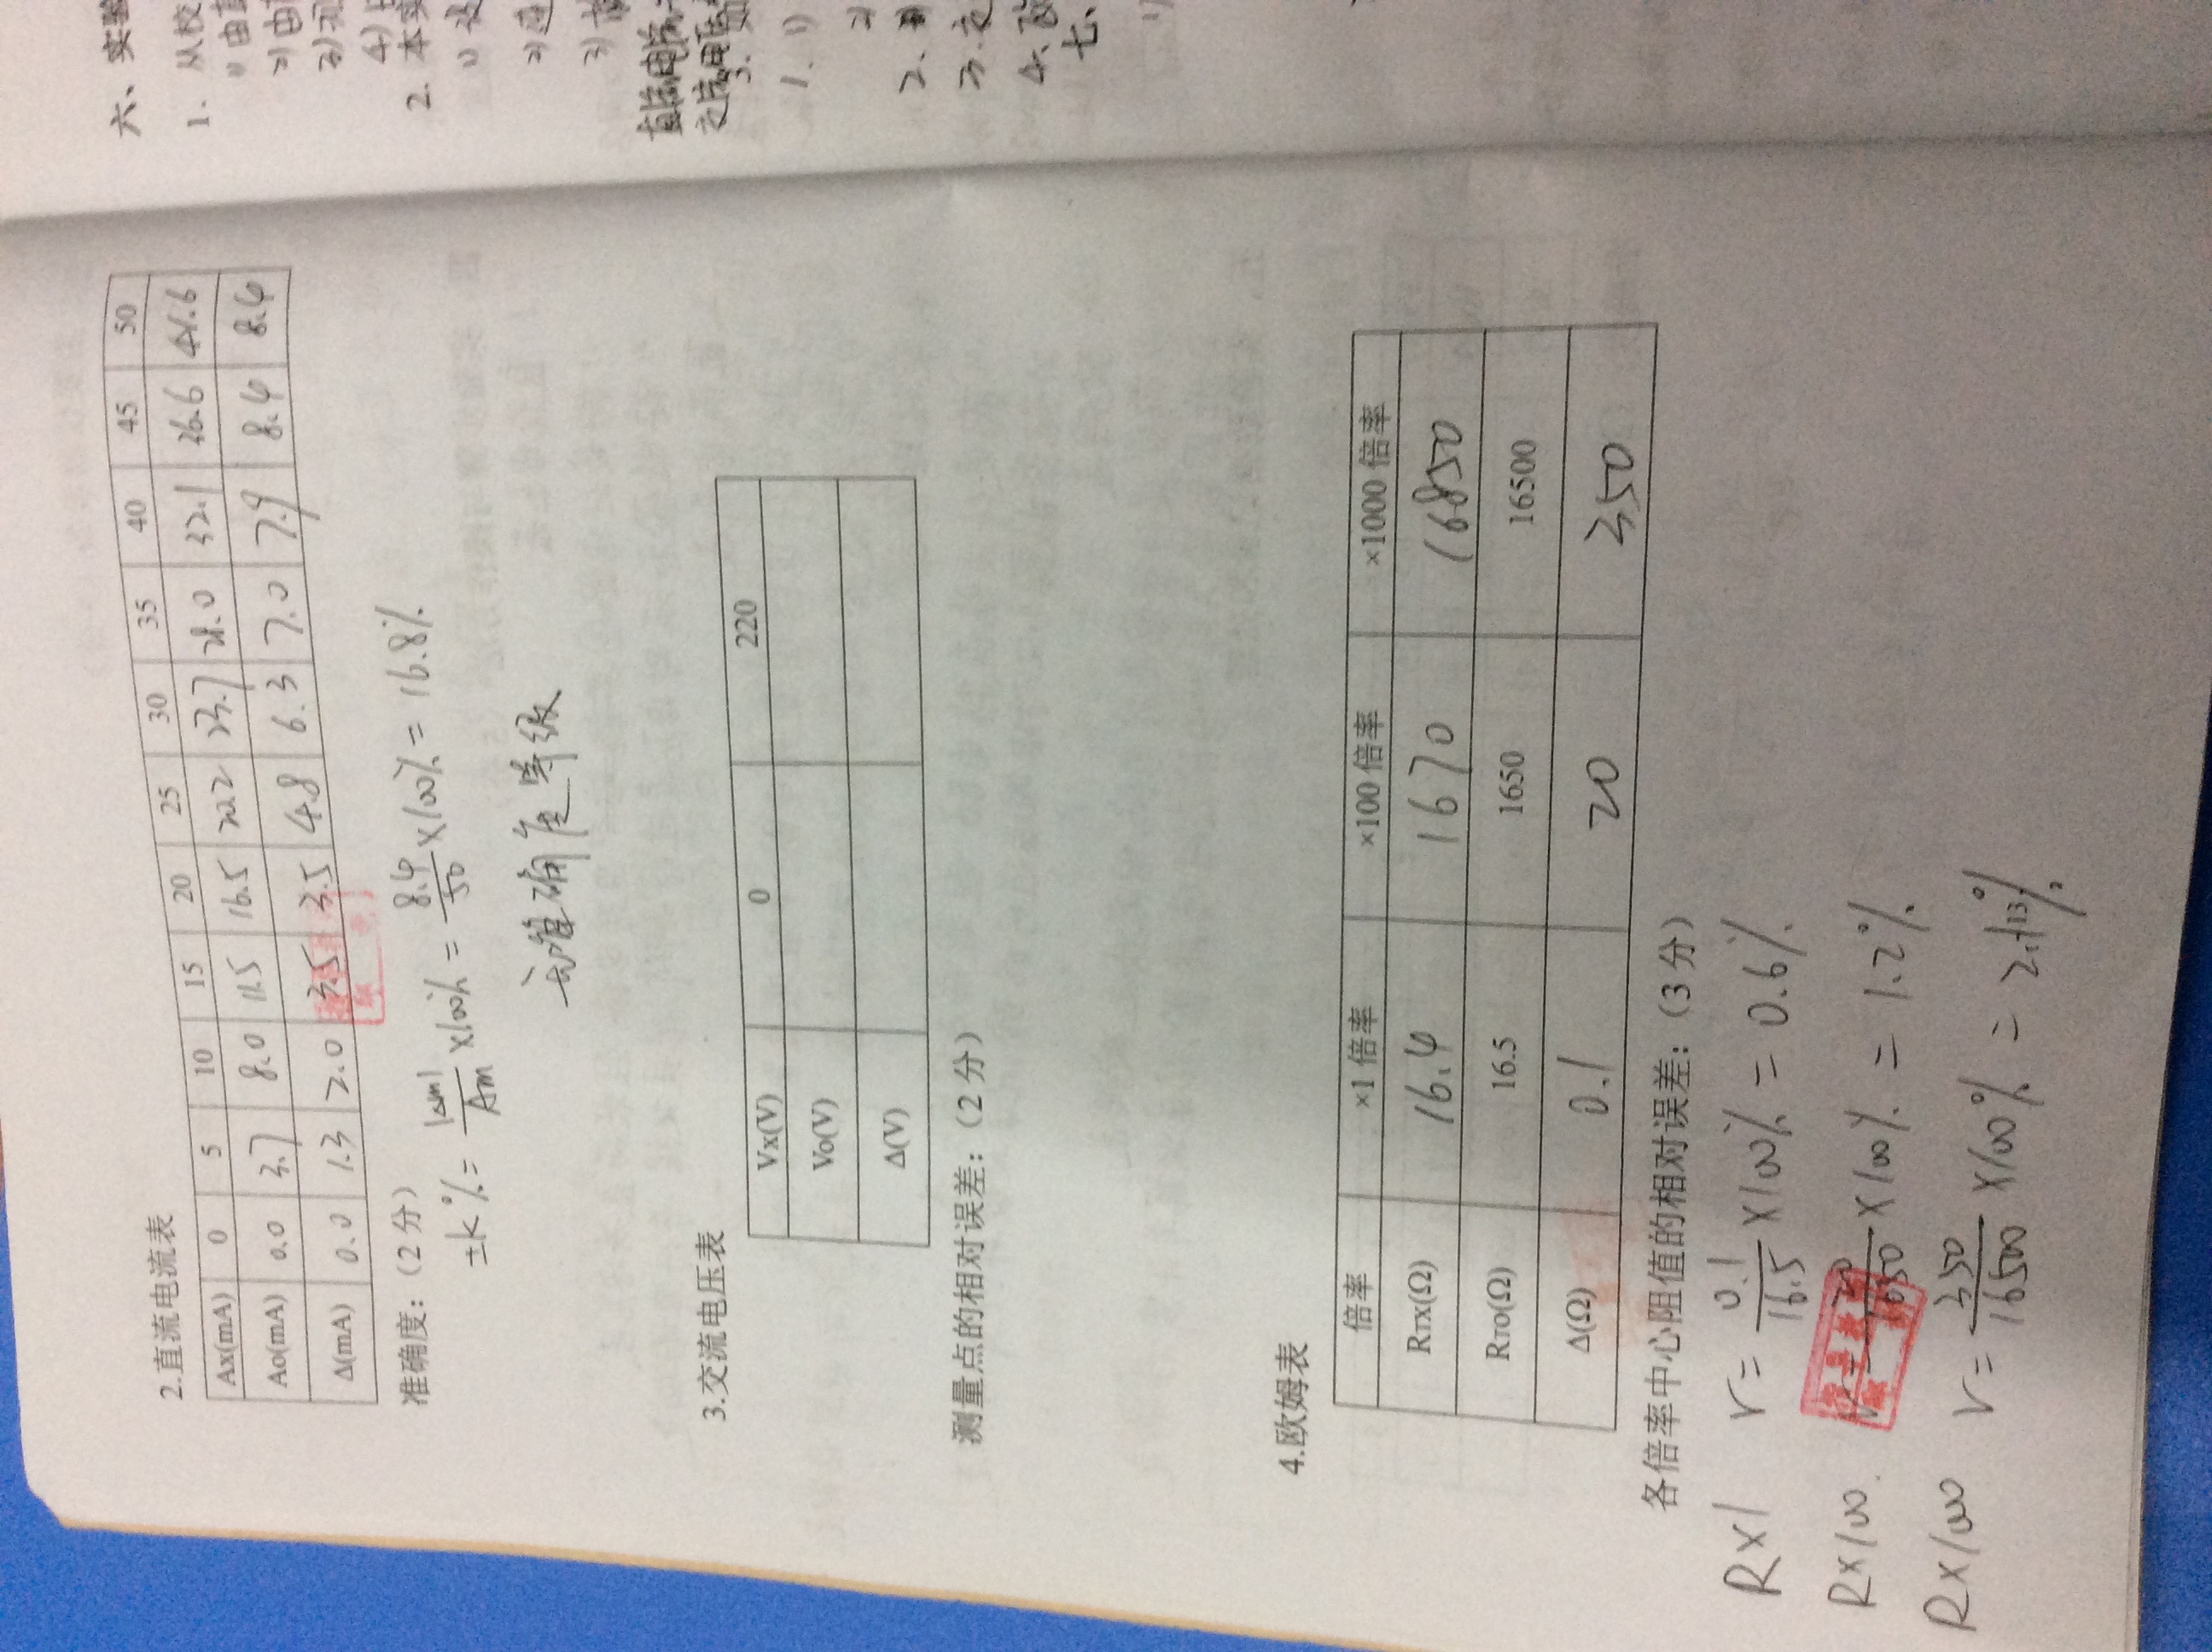 2.直流电流表
Ax(mA) 0 5 10 15 20 25 30 35 40 45 50
Ao(mA) 0.0 3.7 8.0 11.5 16.5 20.2 23.7 28.0 32.1 36.6 41.6
Δ(mA) 0.0 1.3 2.0 3.5 3.5 4.8 6.3 7.0 7.9 8.4 8.4
准确度：（2 分）
±K%= |Δm|/Am ×100% = 8.4/50 ×100% = 16.8%
无准确度等级
3.交流电压表
Vx(V) 0 220
Vo(V)
Δ(V)
测量点的相对误差：（2 分）
4.欧姆表
倍率 ×1 倍率 ×100 倍率 ×1000 倍率
RTX(Ω) 16.4 1670 16850
RTO(Ω) 16.5 1650 16500
Δ(Ω) 0.1 20 350
各倍率中心阻值的相对误差：（3 分）
R×1 r= 0.1/16.5 ×100% = 0.6%
R×100 r= 20/1650 ×100% = 1.2%
R×1000 r= 350/16500 ×100% =
六、实验
1. 从校
1) 由直
2) 由
3)
4)
2. 本实
1) 设
2) 连
3)
直流电流
交流电压
3. 如
1. 1)
2)
2.
3. 交
4. 欧
七、
1)